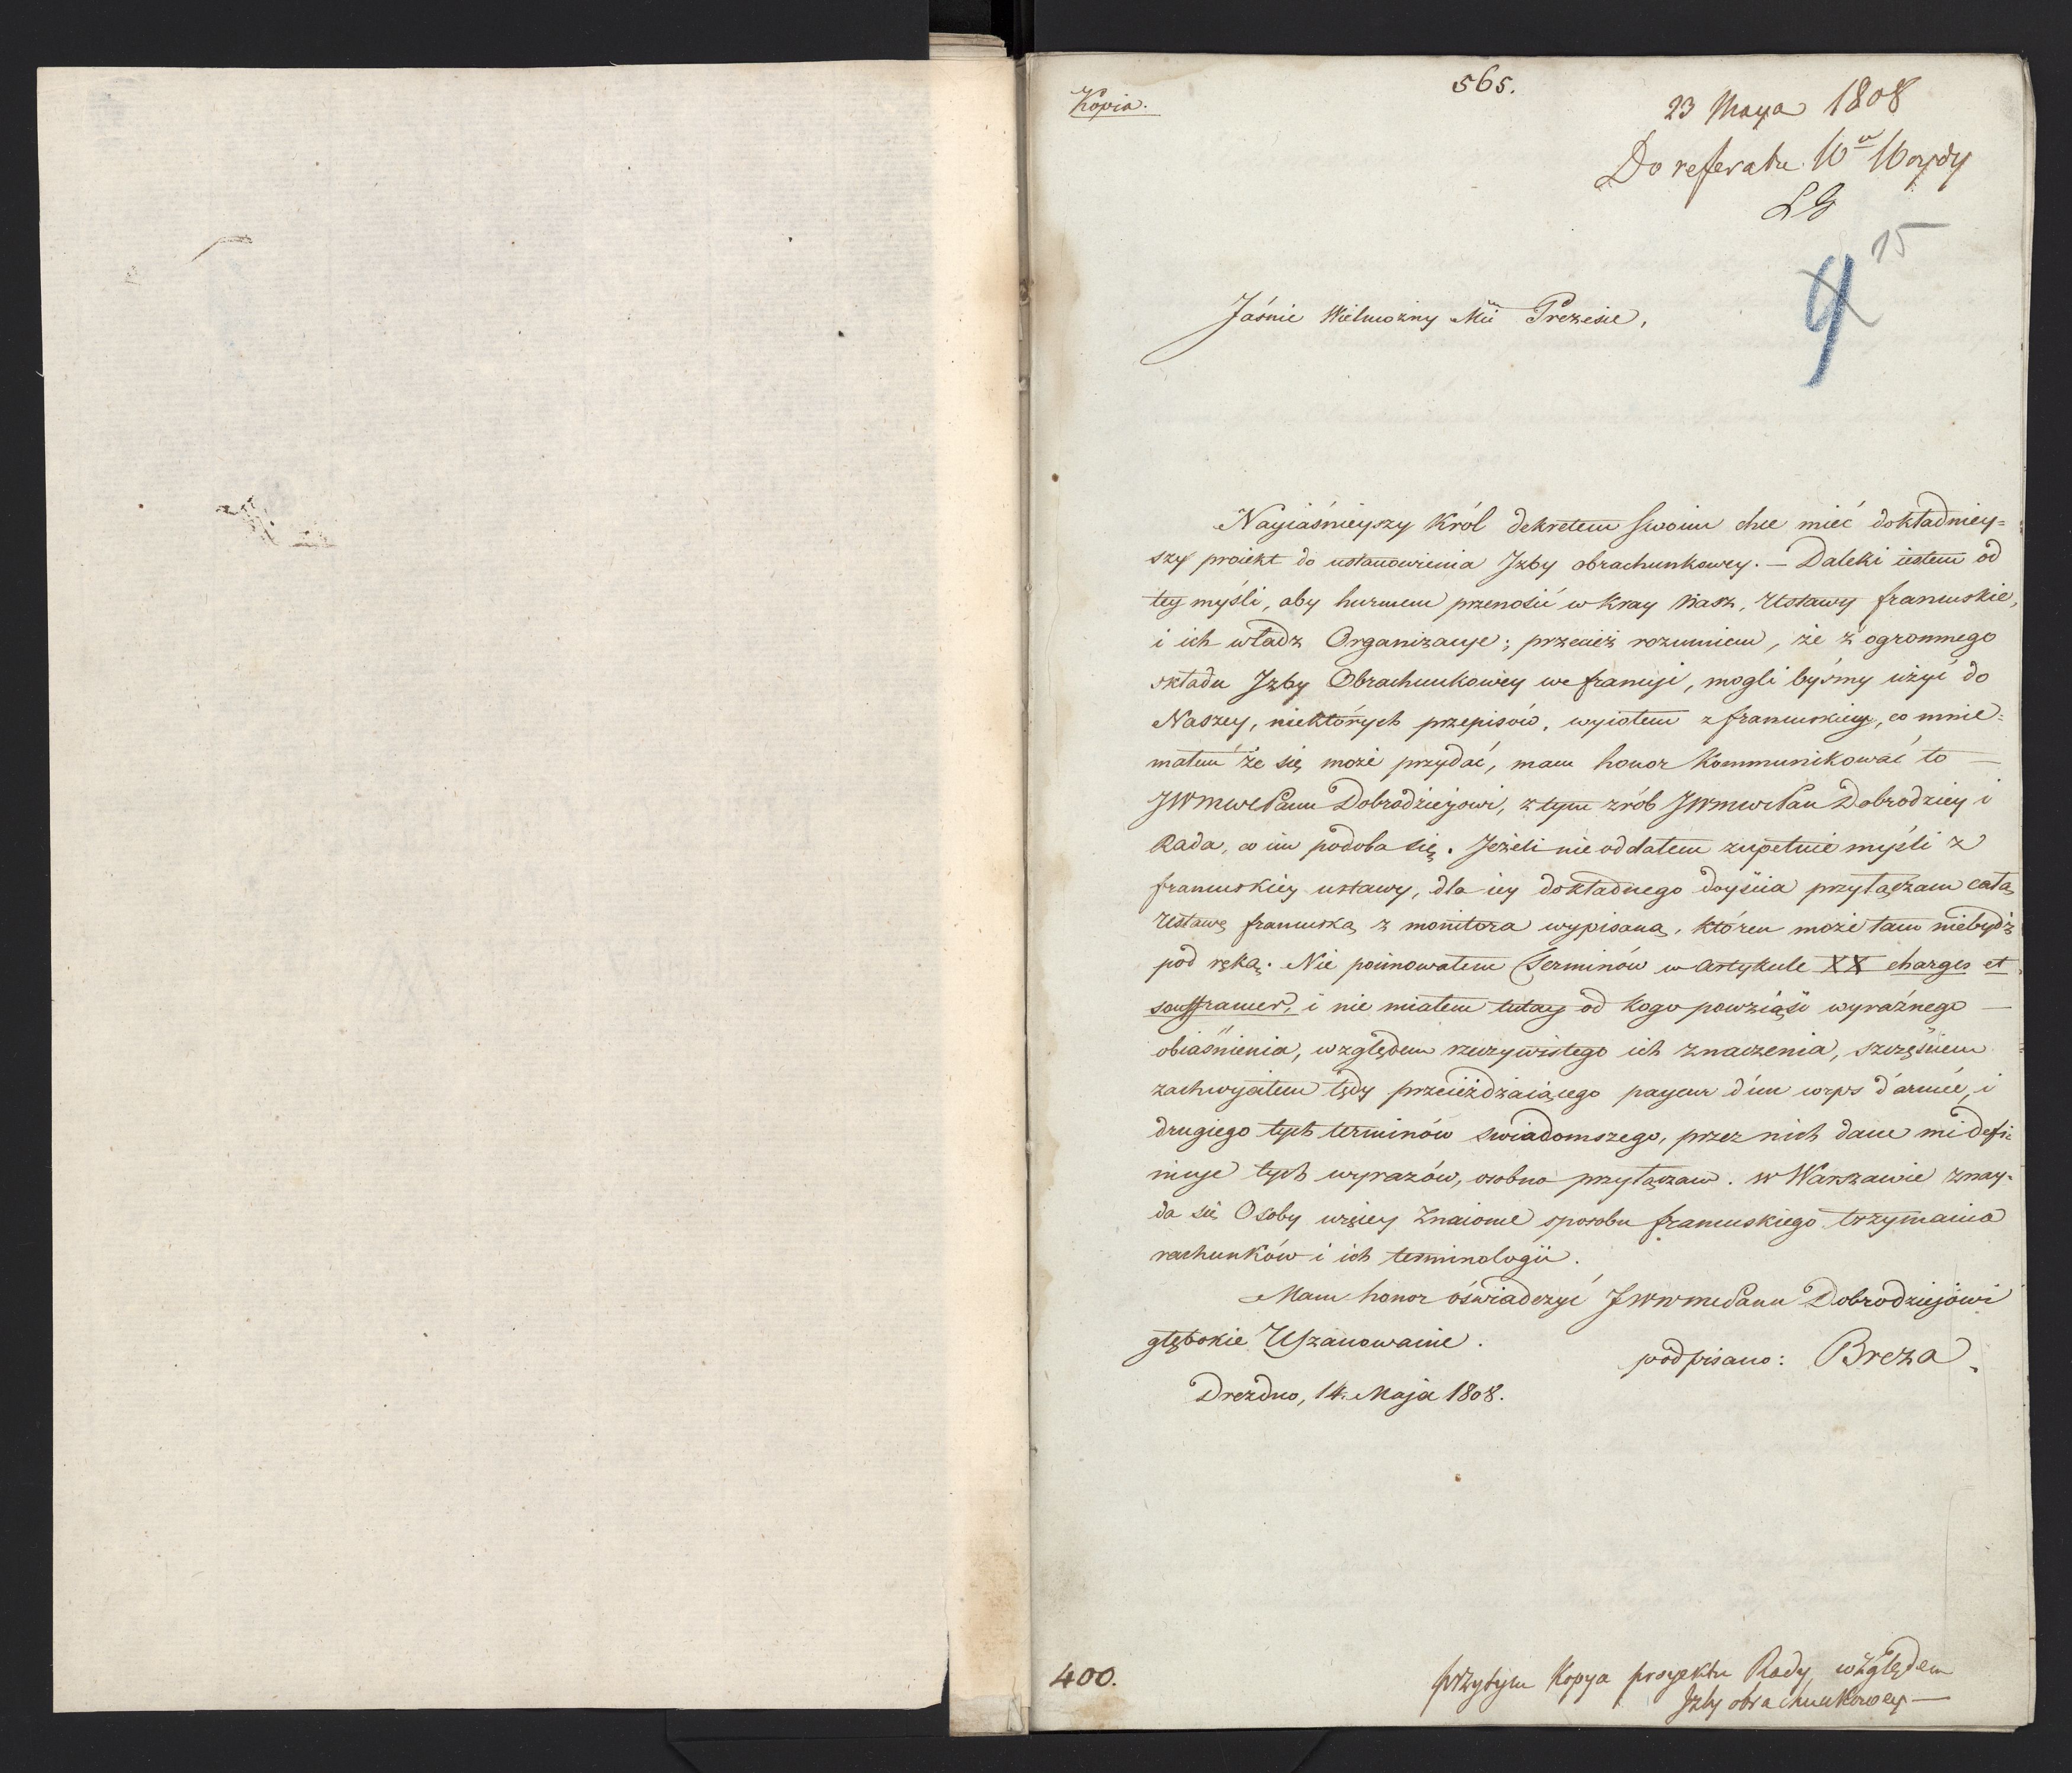 Kopia.
565.
23 Maya 1808
Do referatu Wo Woydy
LG
15
4
Jaśnie Wielmożny Mći Prezesie,
Nayiaśnieyszy Król dekretem swoim chce mieć dokładniey=
szy proiekt do ustanowienia Izby obrachunkowey. — Daleki iestem od
tey myśli, aby hurmem przenosić w Kray Nasz, Ustawy francuskie,
i ich władz Organizacye; przecież rozumiem, że z ogromnego
składu Izby Obrachunkowey we francyi, mogli byśmy użyć do
Naszey, niektórych przepisów, wyiołem z francuskiey, co mnie=
małem że się może przydać, mam honor Kommunikować to —
JWMWcPanu Dobrodziejowi, z tym zrób JWMWcPan Dobrodziey i
Rada, co im podoba się. Jeżeli nie oddałem zupełnie myśli z
francuskiey ustawy, dla iey dokładnego doyścia przyłączam całą
Ustawę francuską z monitora wypisaną, któren może tam niebydź
pod ręką. Nie poimowałem Terminów w artykule XX charges et
souffrances, i nie miałem tutay od kogo powziąść wyraźnego —
obiaśnienia, względem rzeczywistego ich znaczenia, szczęściem
zachwyciłem tędy przeieżdzaiącego payeur d'un corps d'armée, i
drugiego tych terminów świadomszego, przez nich dane mi defi=
nicye tych wyrazów, osobno przyłączam. w Warszawie znay=
da się Osoby więcey znaiome sposobu francuskiego trzymania
rachunków i ich terminologii.
Mam honor oświadczyć JWWMcPanu Dobrodziejowi
głębokie Uszanowanie.
podpisano: Breza.
Drezdno, 14. Maja 1808.
400.
przytym Kopya proyektu Rady względem
Izby obrachunkowey —